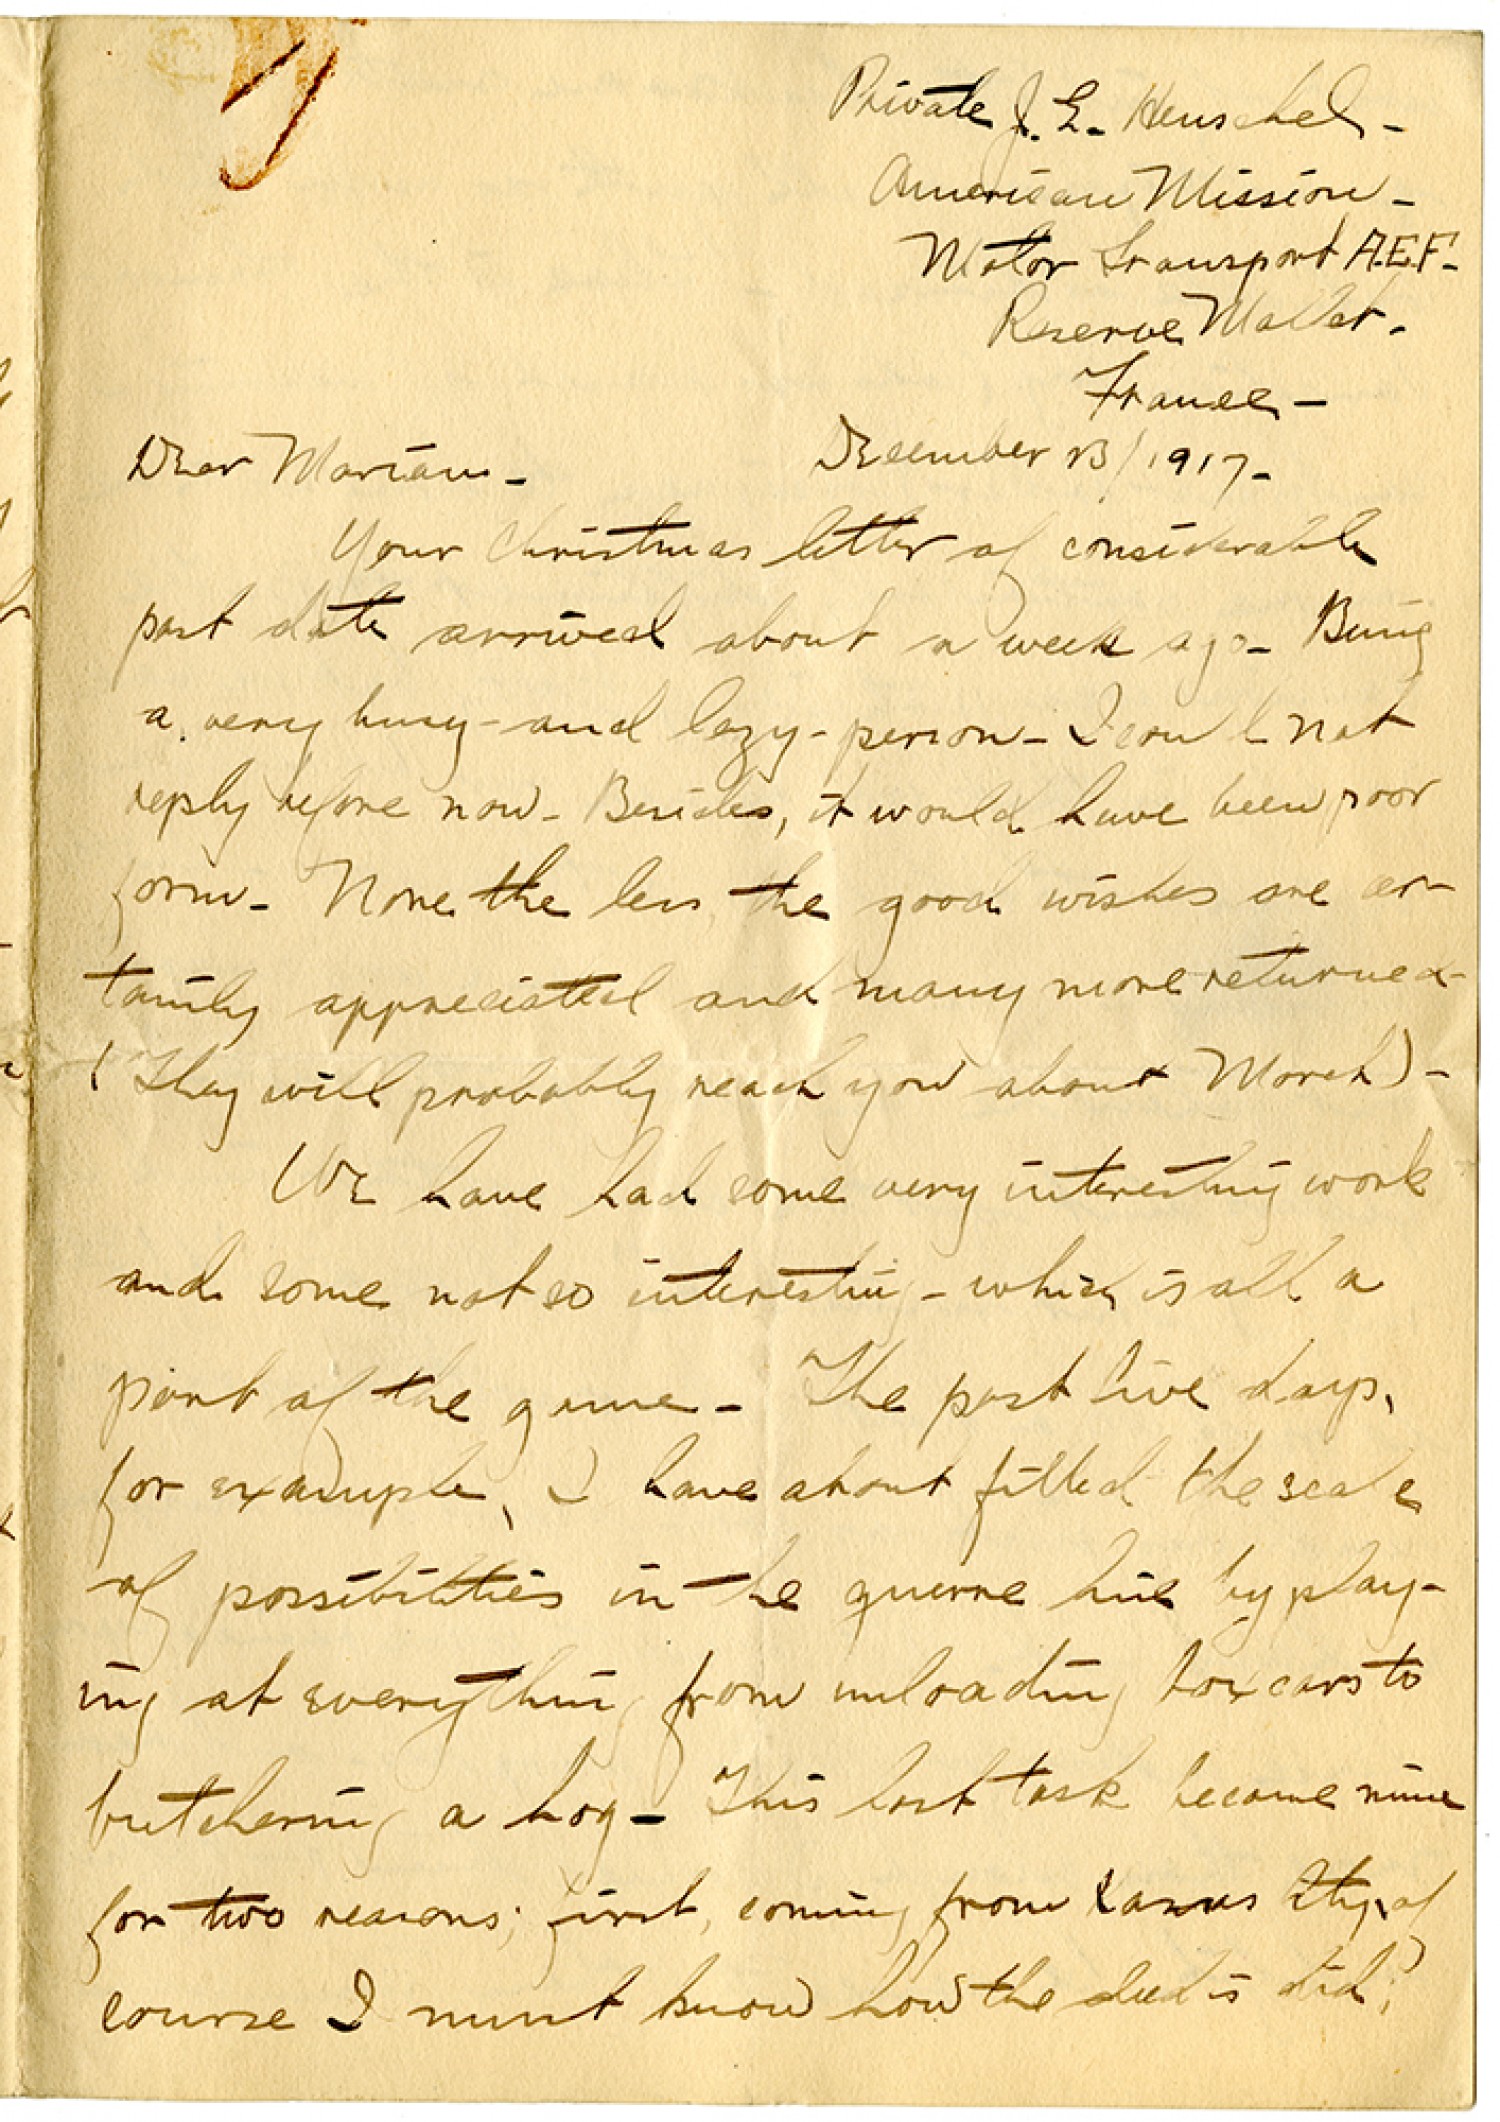 Private J. L. Henschel -
American Mission -
Motor Transport A.E.F. -
Reserve Mallet -
France -
Dear Marian - December 23/1917 -
Your Christmas letter of considerable
past date arrived about a week ago - Being
a very busy - and lazy - person - I could not
reply before now - Besides, it would have been poor
form - None the less, the good wishes are cer-
tainly appreciated and many more returned -
(They will probably reach you about March) -
We have had some very interesting work
and some not so interesting - which is all a
part of the game - The past five days,
for example, I have about filled the scale
of possibilities in the guerre line by play-
ing at everything from unloading box cars to
butchering a hog - This last task became mine
for two reasons; first, coming from Kansas City, of
course I must know how the deed is did;